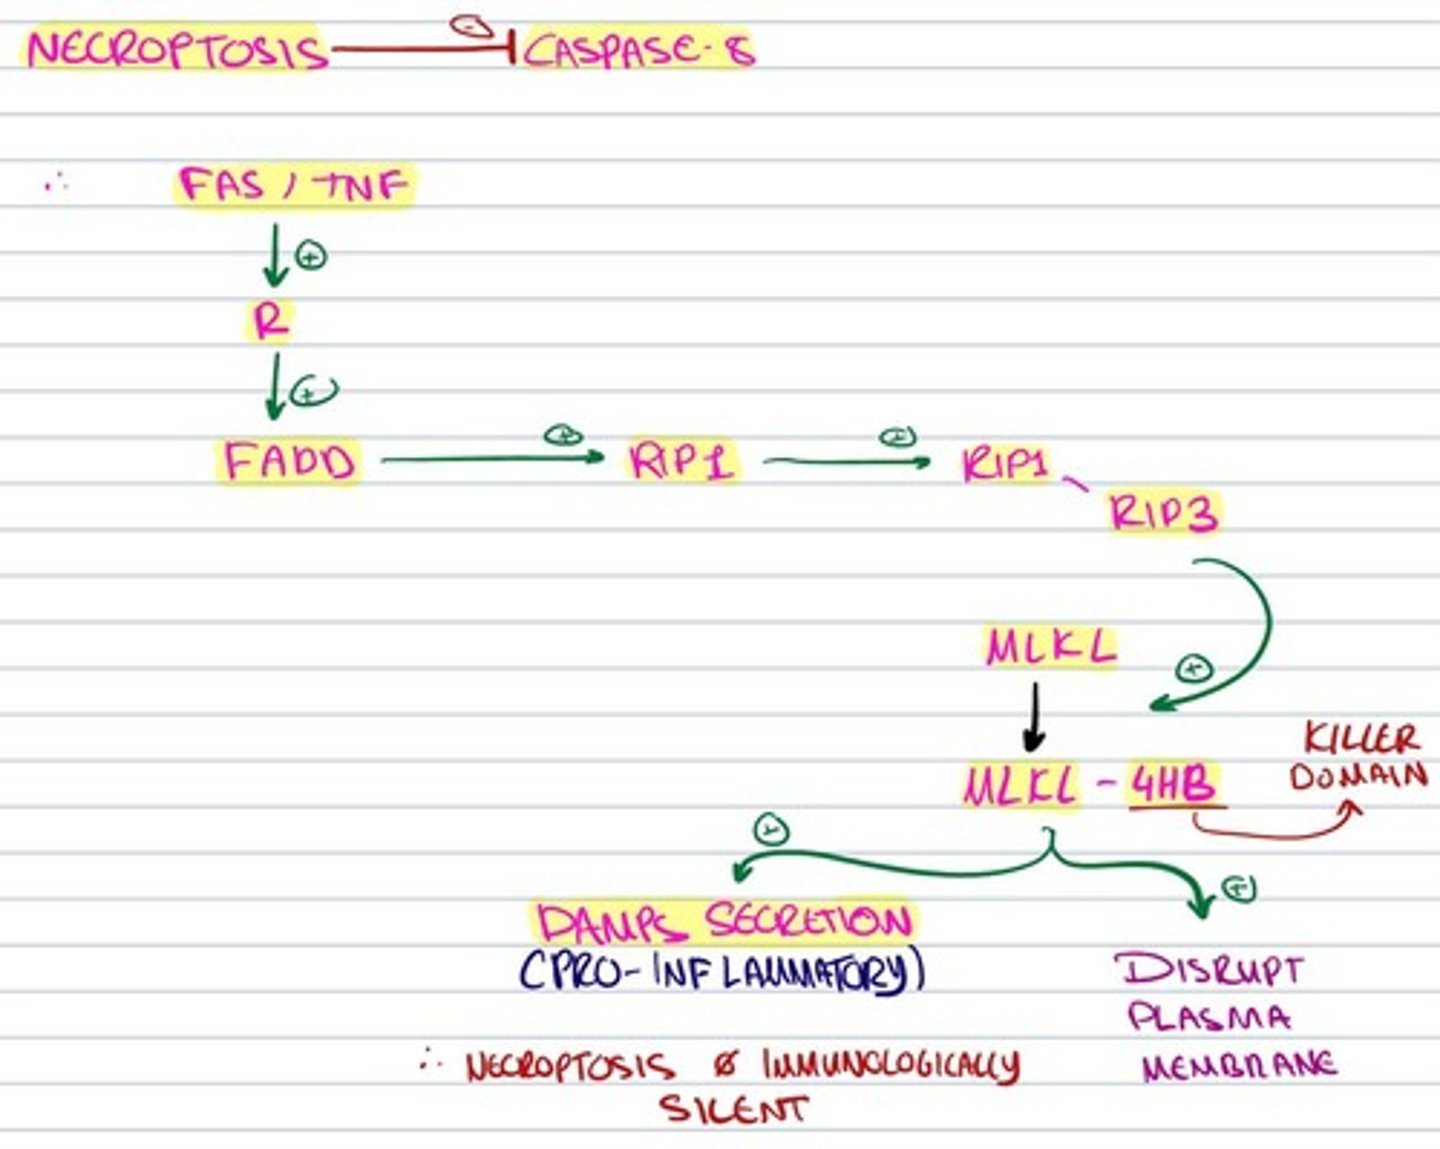 NECROPTOSIS ⊖ CASPASE-8
∴ FAS / TNF
⊕
R
⊕
FADD ⊕ RIP1 ⊕ RIP1
RIP3
MLKL
⊕
KILLER
DOMAIN
MLKL - 4HB
⊕
⊕
DAMPS SECRETION
(PRO-INFLAMMATORY)
DISRUPT
PLASMA
MEMBRANE
∴ NECROPTOSIS Ø IMMUNOLOGICALLY
SILENT